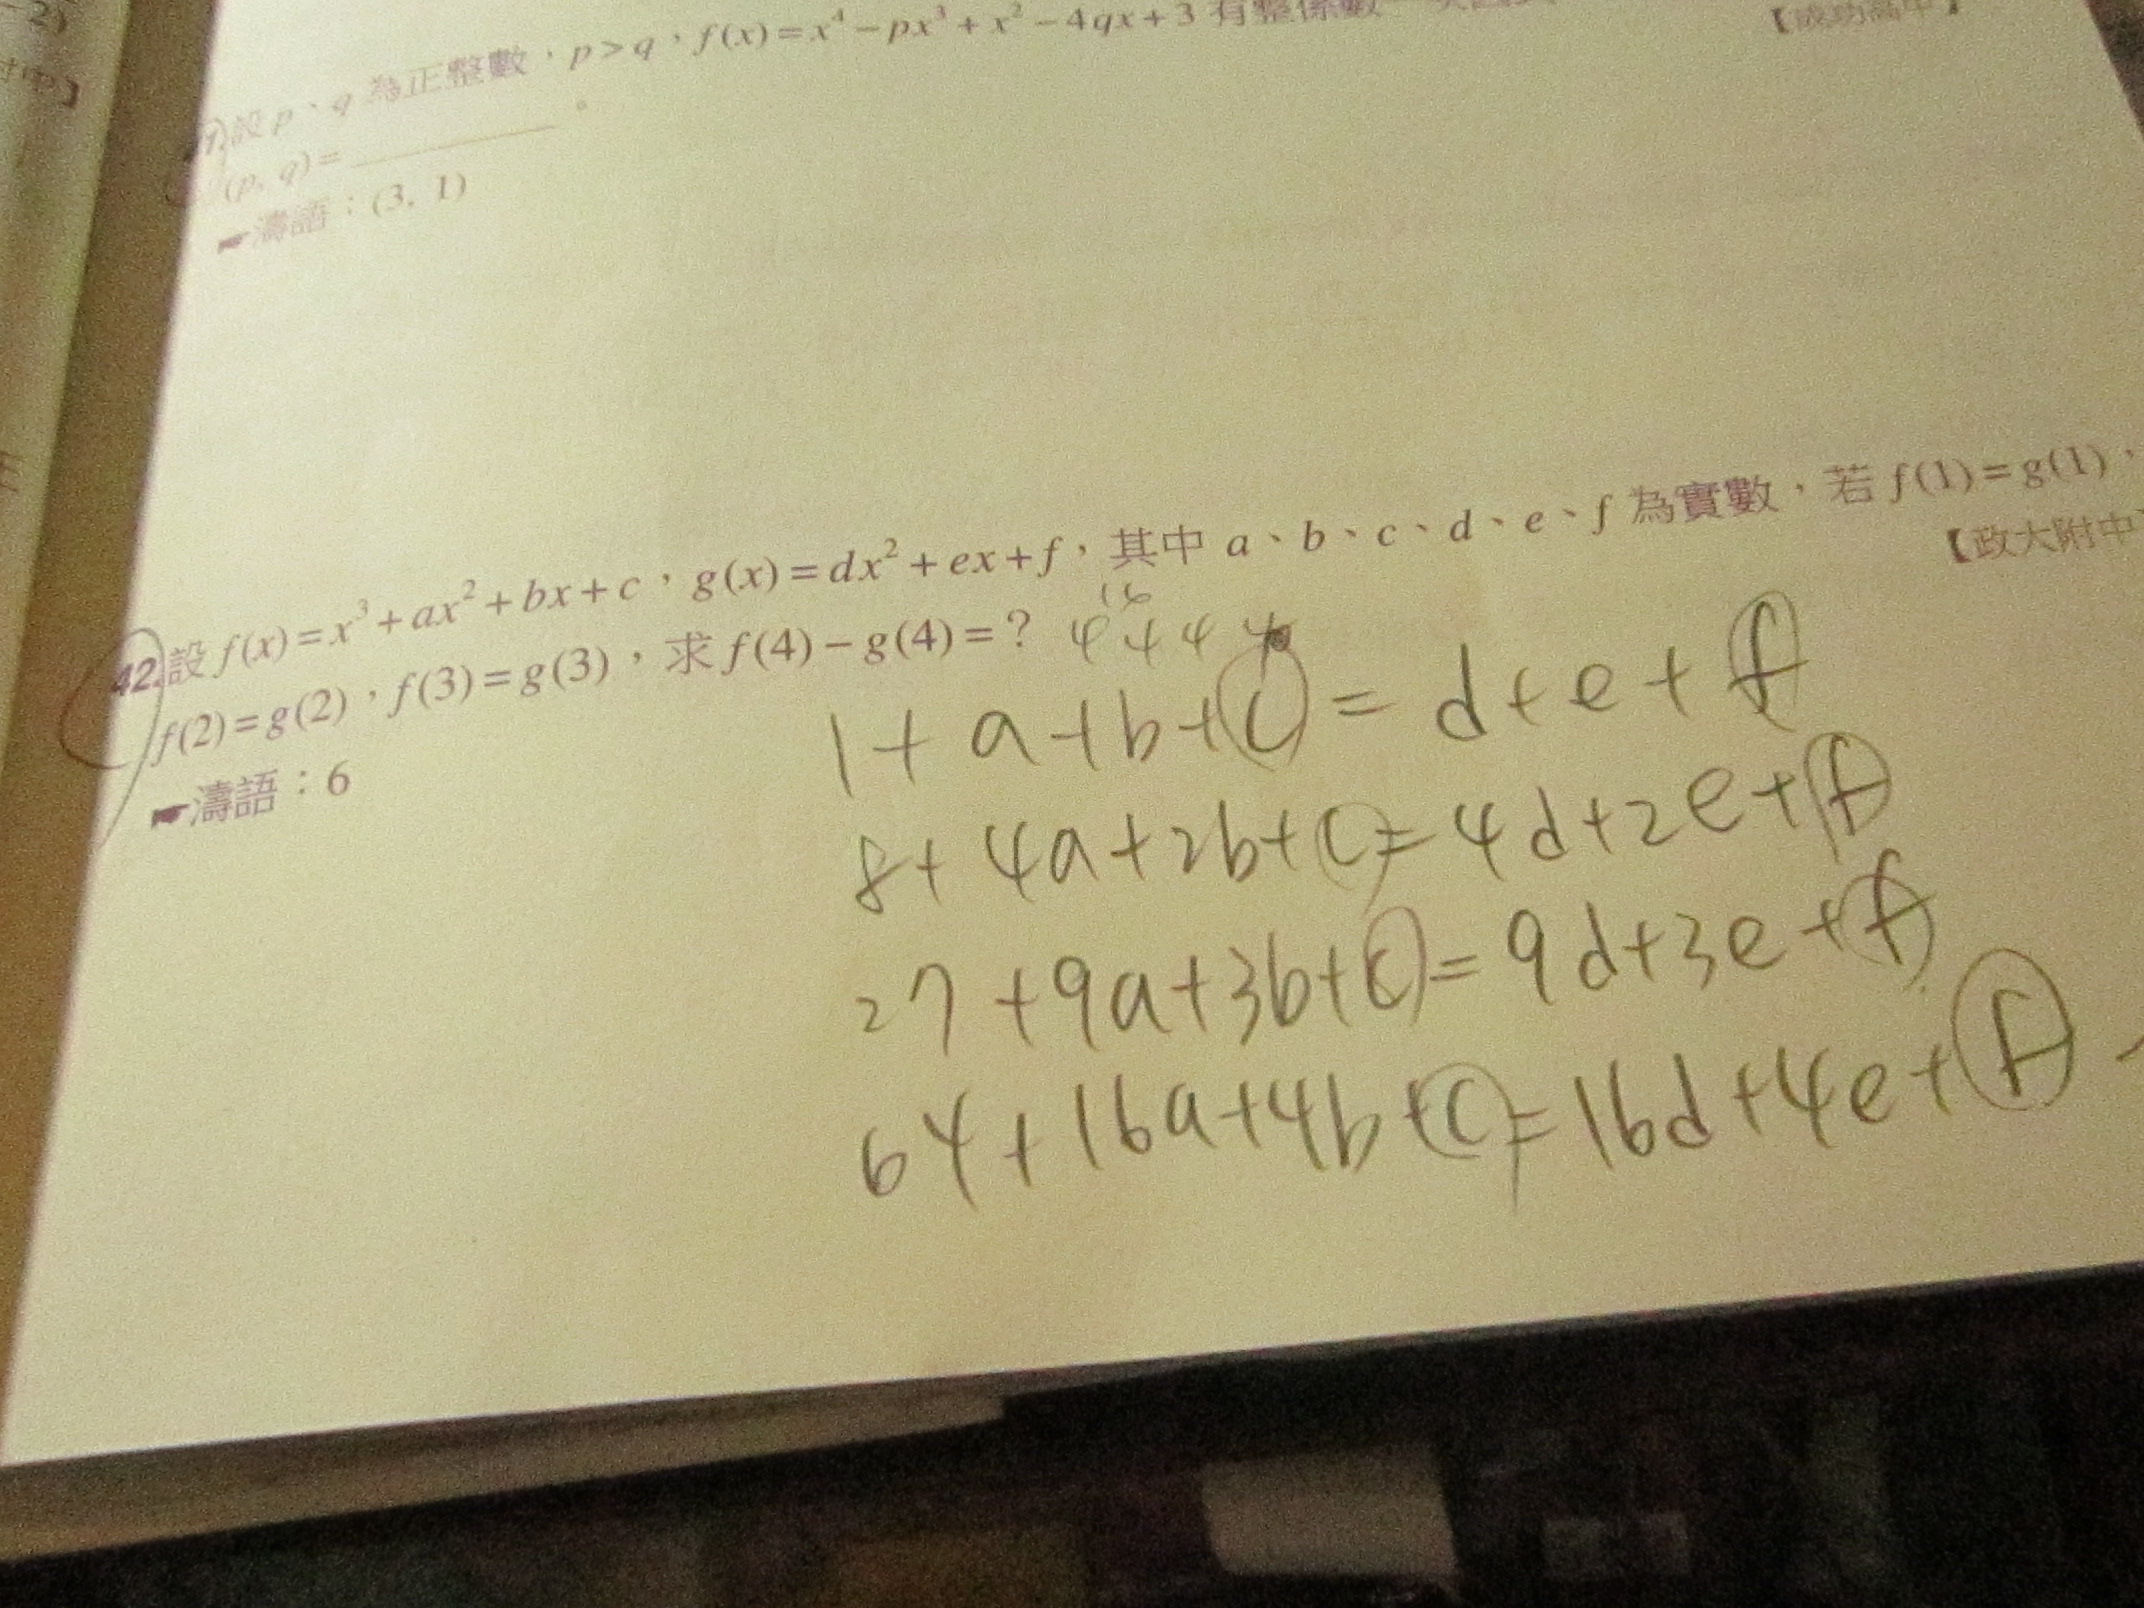 -2)
附中】
設 p、q 為正整數，p > q，f(x) = x⁴ − px³ + x² − 4qx + 3 有整係數一次因式
【成功高中】
(p, q) = ________。
☛濤語：(3, 1)
42.設 f(x) = x³ + ax² + bx + c，g(x) = dx² + ex + f，其中 a、b、c、d、e、f 為實數，若 f(1) = g(1)，
f(2) = g(2)，f(3) = g(3)，求 f(4) − g(4) = ?
【政大附中】
☛濤語：6
16
4+4
1+a+b+c = d+e+f
8+4a+2b+c = 4d+2e+f
27+9a+3b+c = 9d+3e+f
64+16a+4b+c = 16d+4e+f